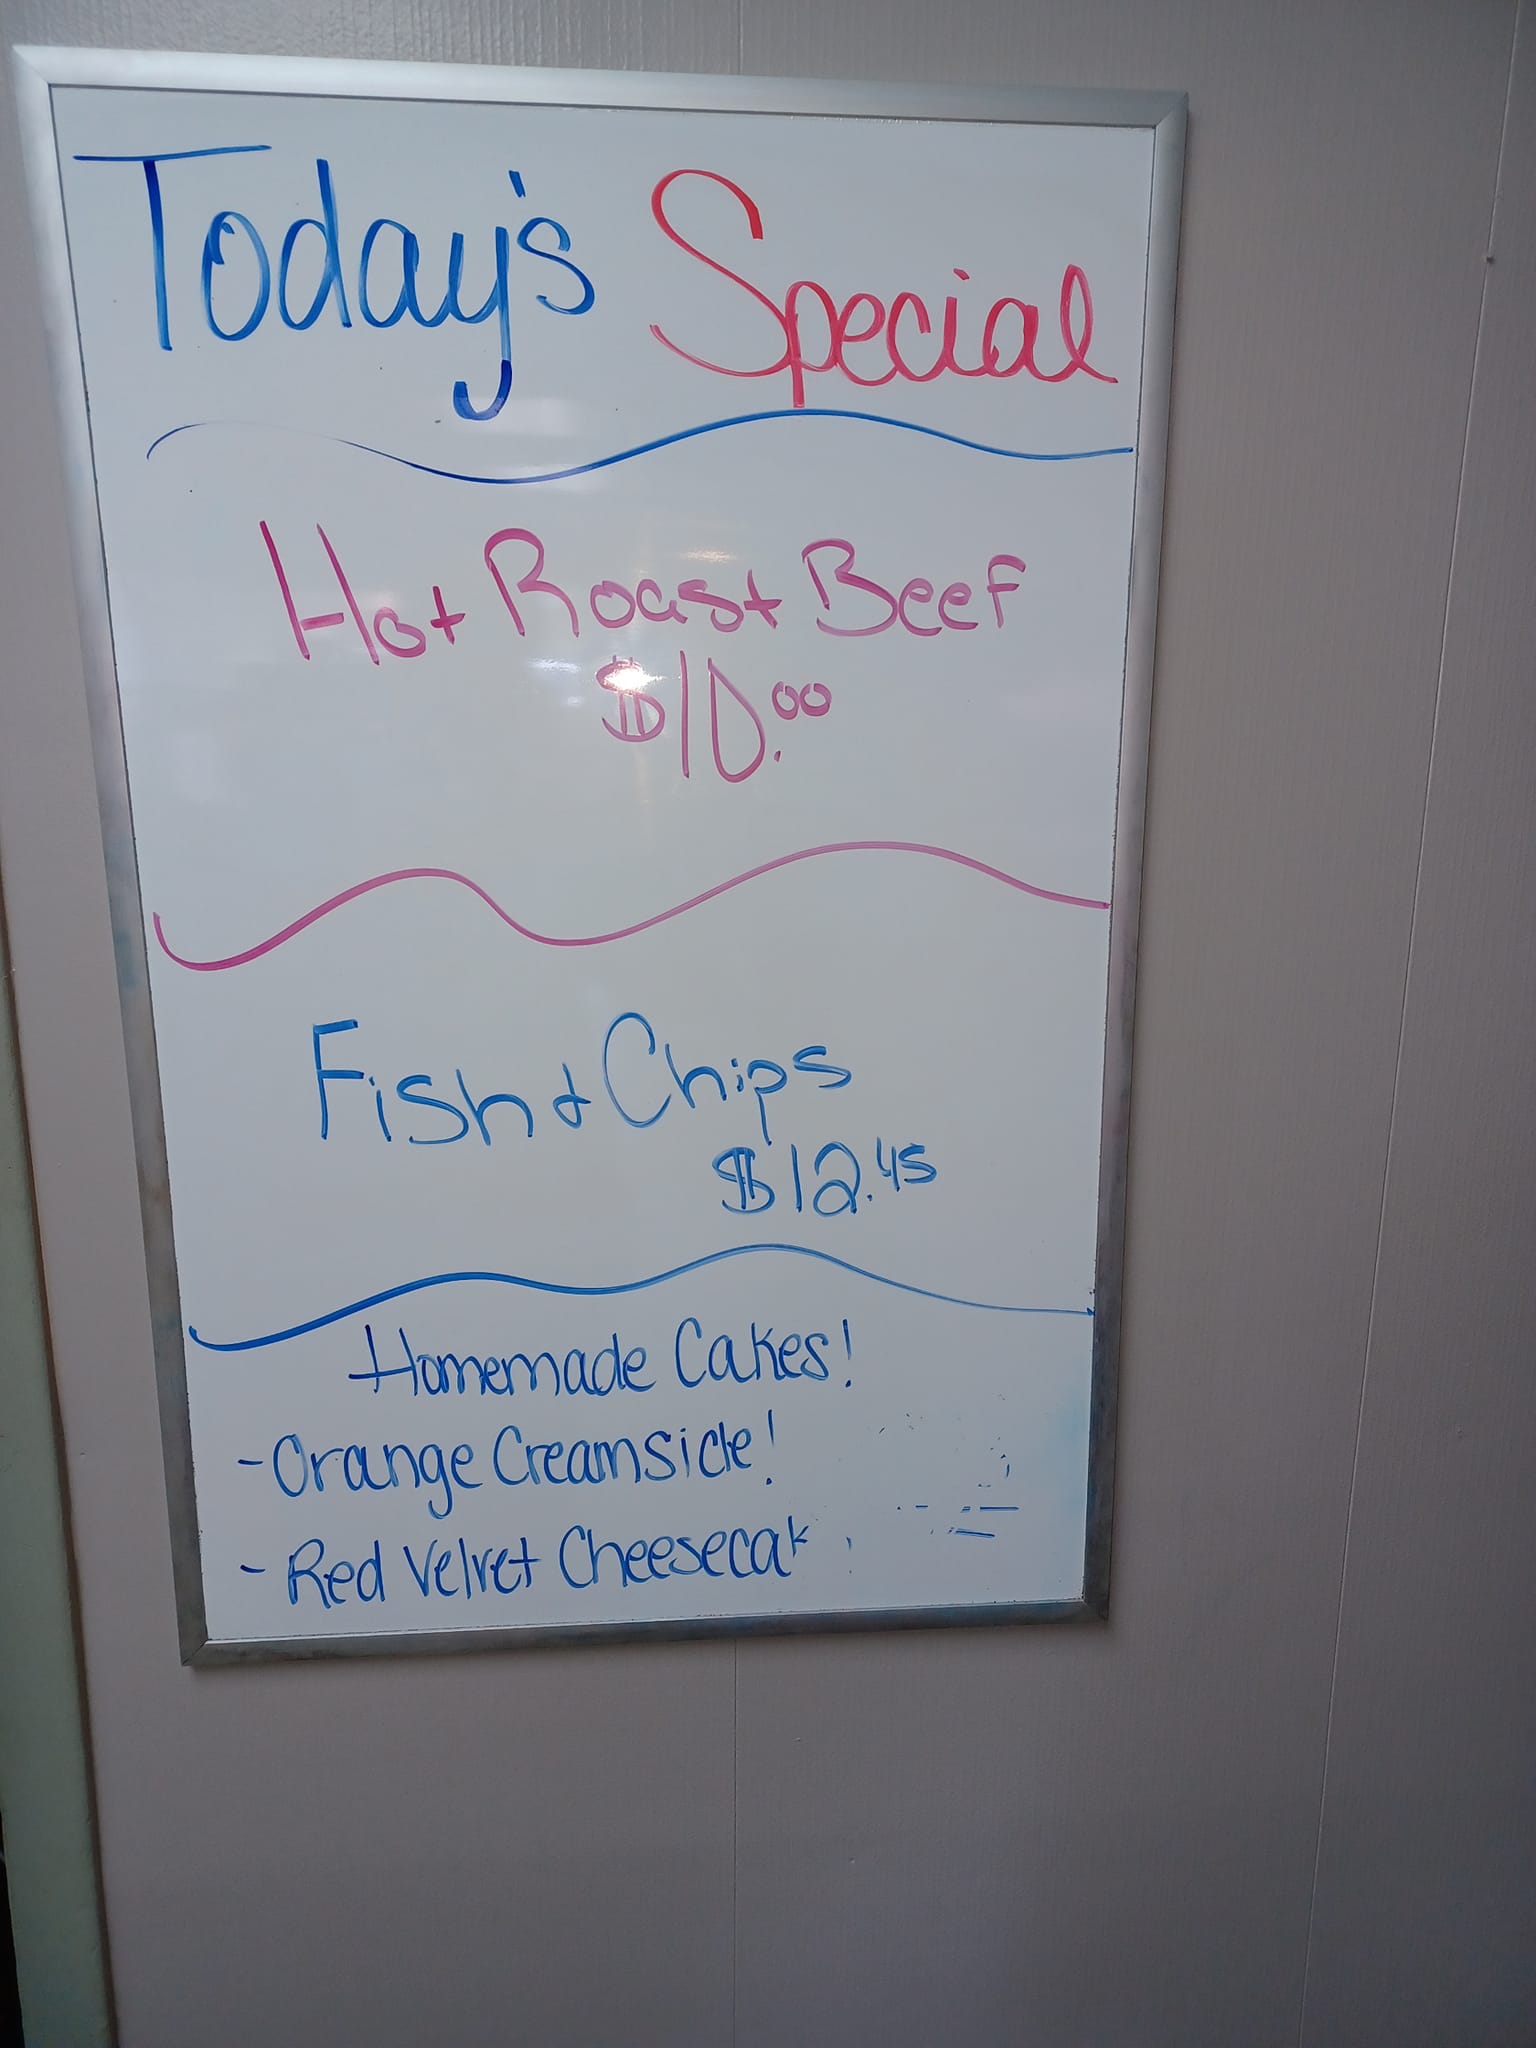 Today's Special
Hot Roast Beef
$10.00
Fish & Chips
$12.45
Homemade Cakes!
-Orange Creamsicle!
-Red Velvet Cheesecak